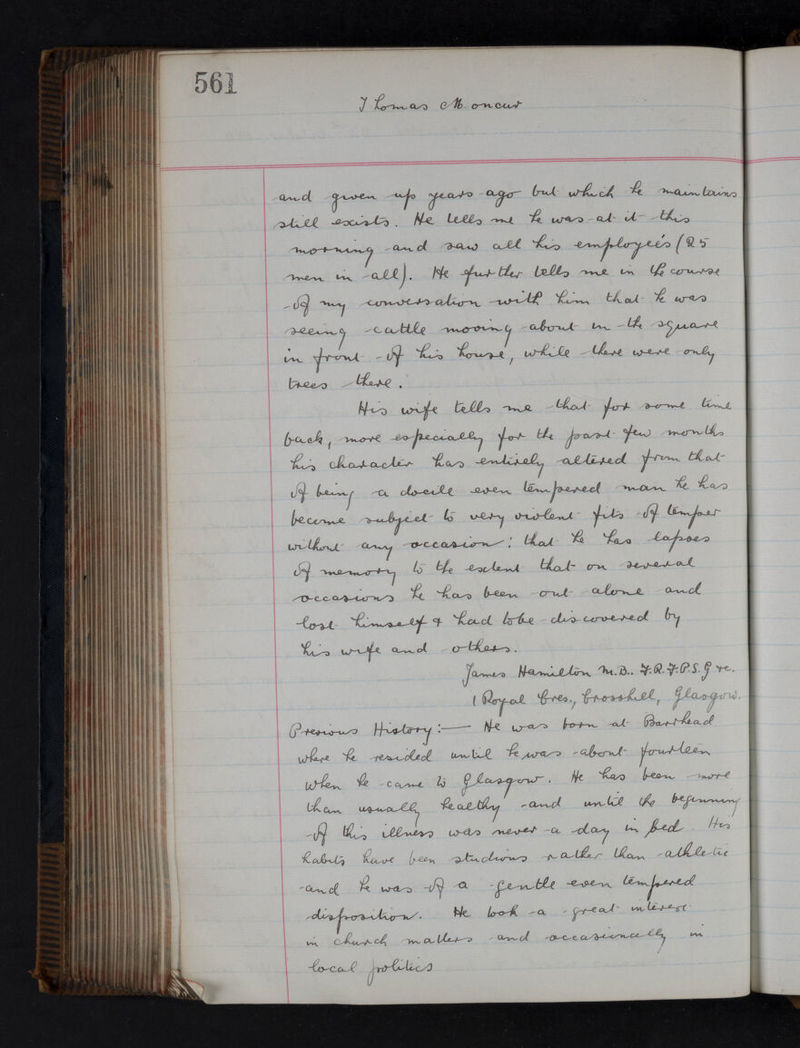 561
Thomas Moncur
and given up years ago but which he maintains
still exists. He tells me he was at it this
morning and saw all his employeés (25
men in all). He further tells me in the course
of my conversation with him that he was
seeing cattle moving about in the square
in front of his house, while there were only
trees there.
His wife tells me that for some time
back, more especially for the past few months
his character has entirely altered from that
of being a docile even tempered man he has
become subject to very violent fits of temper
without any occasion: that he has lapses
of memory to the extent that on several
occasions he has been out alone and
lost himself & had to be discovered by
his wife and others.
James Hamilton M.B.. F.R.F.P.S.G &c.
1 Royal Cres., Crosshill, Glasgow.
Previous History:— He was born at Barrhead
where he resided until he was about fourteen
when he came to Glasgow. He has been more
than usually healthy and until the beginning
of this illness was never a day in bed. His
habits have been studious rather than athletic
and he was of a gentle even tempered
disposition. He took a great interest
in church matters and occasionally in
local politics